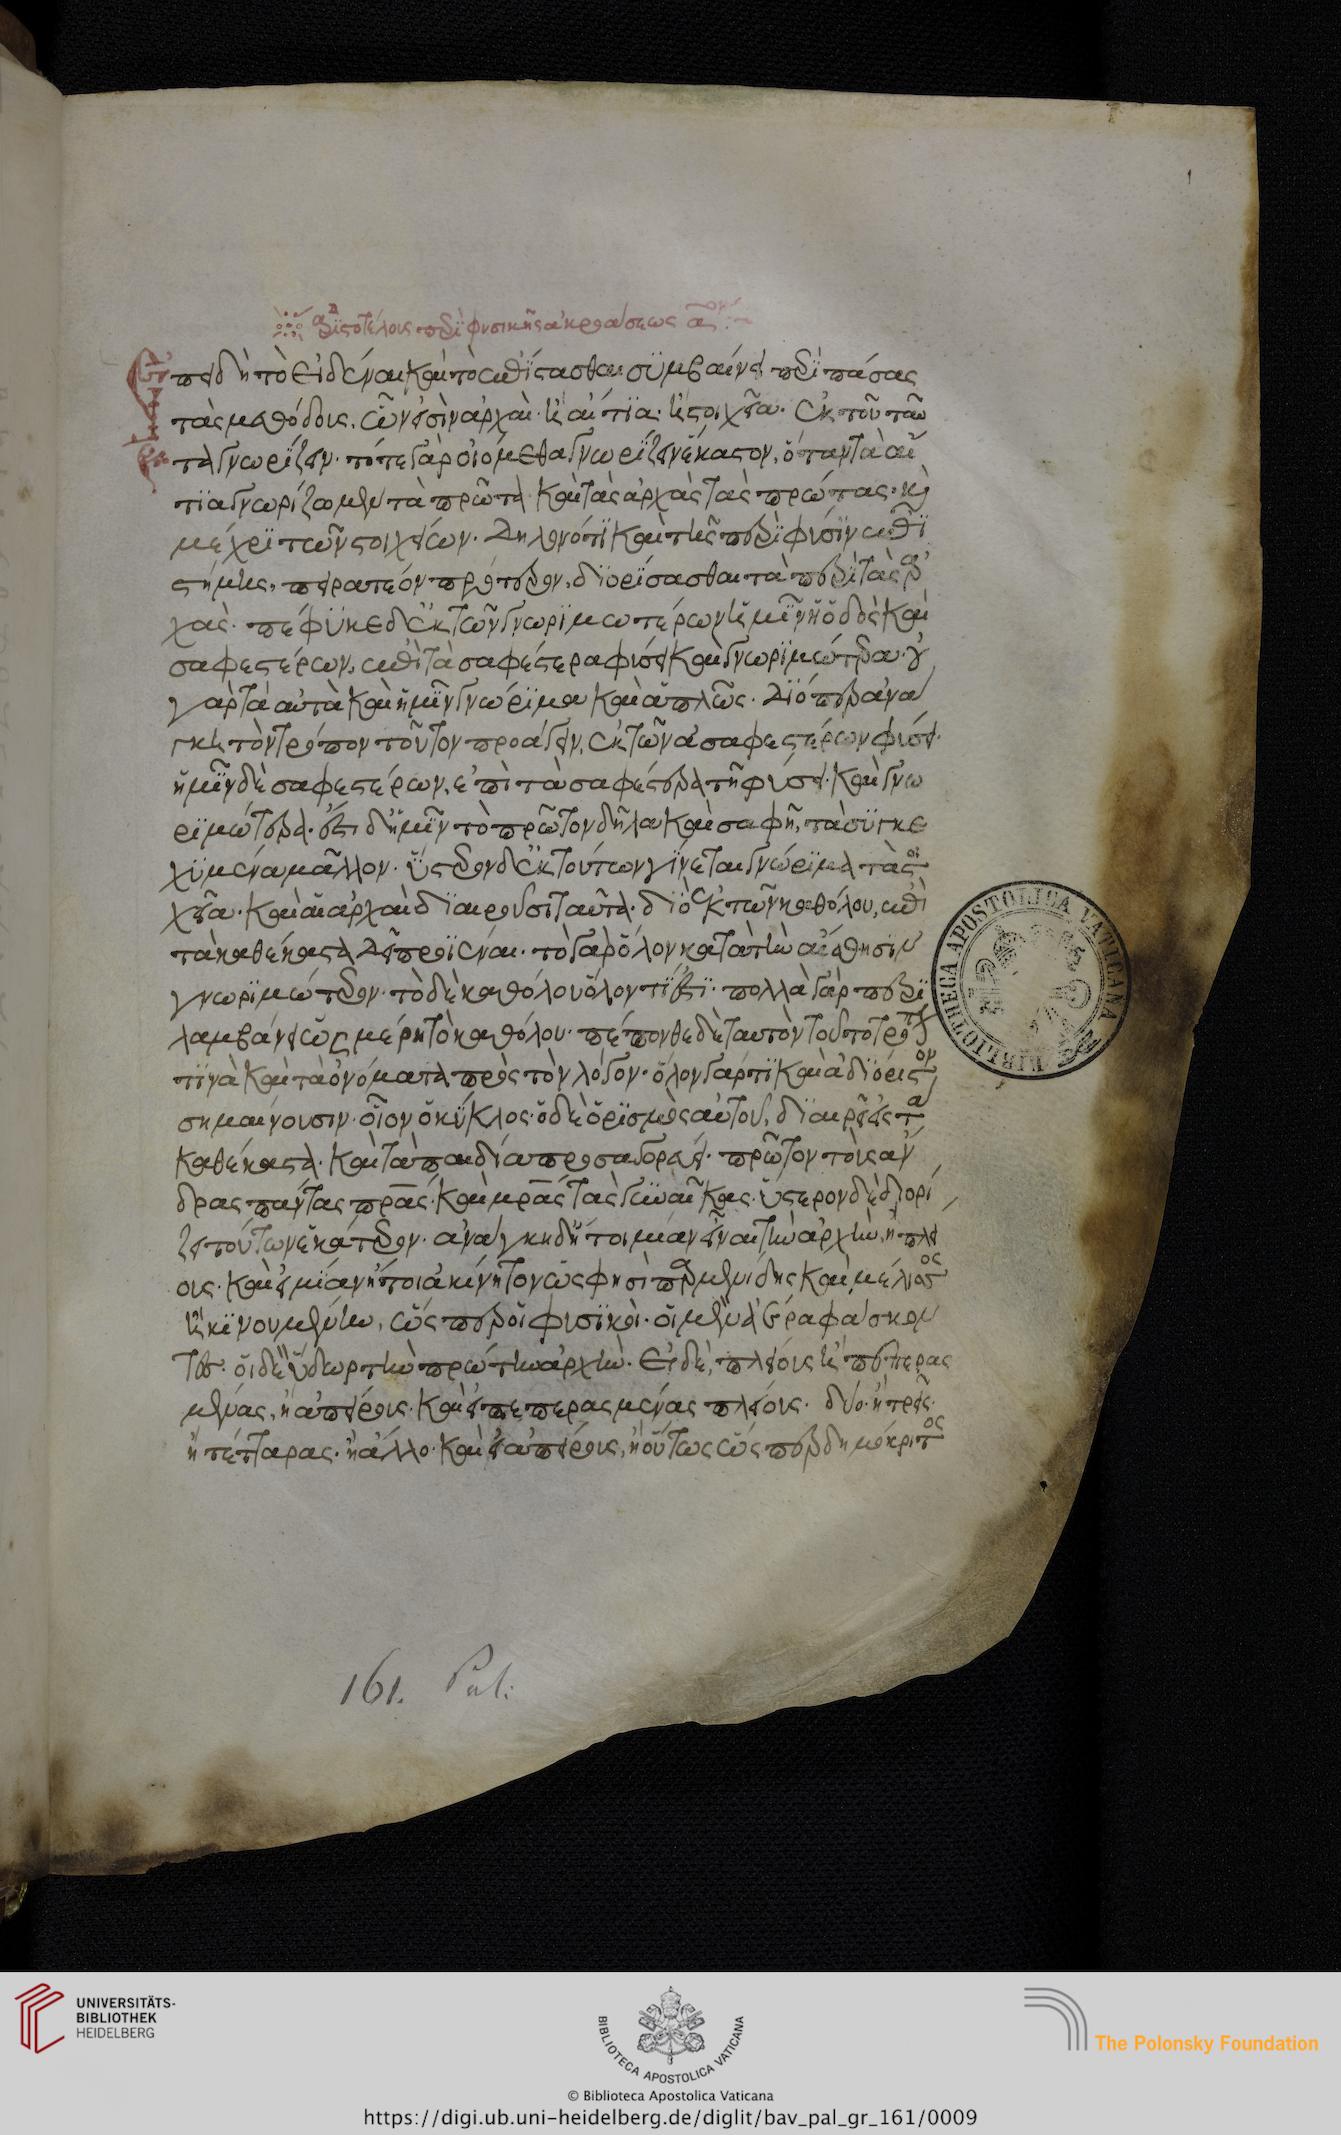 1
ἀριστοτέλους περὶ φυσικῆς ἀκροάσεως α
Ἐπειδὴ τὸ εἰδέναι καὶ τὸ ἐπίστασθαι συμβαίνει περὶ πάσας
τὰς μεθόδους, ὧν εἰσὶν ἀρχαὶ ἢ αἴτια ἢ στοιχεῖα. ἐκ τοῦ ταῦ
τα γνωρίζειν. τότε γὰρ οἰόμεθα γνωρίζειν ἕκαστον, ὅταν τὰ αἴ
τια γνωρίζωμεν τὰ πρῶτα καὶ τὰς ἀρχὰς τὰς πρώτας. καὶ
μέχρι τῶν στοιχείων. δηλονότι καὶ τῆς περὶ φύσιν ἐπι
στήμης, πειρατέον πρότερον, διορίσασθαι τὰ περὶ τὰς ἀρ
χάς. πέφυκε δὲ ἐκ τῶν γνωριμωτέρων ἡμῖν ἡ ὁδὸς καὶ
σαφεστέρων, ἐπὶ τὰ σαφέστερα φύσει καὶ γνωριμώτερα. οὐ
γὰρ ταὐτὰ καὶ ἡμῖν γνώριμα καὶ ἁπλῶς. διόπερ ἀνά
γκη τὸν τρόπον τοῦτον προάγειν, ἐκ τῶν ἀσαφεστέρων φύσει.
ἡμῖν δὲ σαφεστέρων, ἐπὶ τὰ σαφέστερα τῇ φύσει καὶ γνω
ριμώτερα. ἔστι δ' ἡμῖν τὸ πρῶτον δῆλα καὶ σαφῆ, τὰ συγκε
χυμένα μᾶλλον. ὕστερον δ' ἐκ τούτων γίνεται γνώριμα τὰ στοι
χεῖα. καὶ αἱ ἀρχαὶ διαιροῦσι ταῦτα. διὸ ἐκ τῶν καθόλου, ἐπὶ
τὰ καθέκαστα δεῖ προϊέναι. τὸ γὰρ ὅλον κατὰ τὴν αἴσθησιν
γνωριμώτερον. τὸ δὲ καθόλου ὅλον τί ἐστι. πολλὰ γὰρ περι
λαμβάνει ὡς μέρη τὸ καθόλου. πέπονθε δὲ ταυτὸν τοῦτο τρόπον
τινὰ καὶ τὰ ὀνόματα πρὸς τὸν λόγον. ὅλον γάρ τι καὶ ἀδιορίστον
σημαίνουσιν. οἷον ὁ κύκλος. ὁ δὲ ὁρισμὸς αὐτοῦ, διαιρεῖ εἰς τα
καθέκαστα. καὶ τὰ παιδία προσαγορεύει. πρῶτον τοὺς ἄν
δρας πάντας πρας. καὶ μρας τὰς γυναῖκας. ὕστερον δὲ διορί
ζει τούτων ἑκάτερον. ἀνάγκη δ' ἤτοι μίαν εἶναι τὴν ἀρχὴν, ἢ πλεί
ους. καὶ εἰ μίαν ἤτοι ἀκίνητον ὥς φησὶ παρμενίδης καὶ μέλισσος
ἢ κινουμένην, ὥσπερ οἱ φυσικοὶ. οἱ μὲν ἀέρα φάσκον
τες. οἱ δὲ ὕδωρ τὴν πρώτην ἀρχὴν. εἰ δὲ, πλείους ἢ πεπερας
μένας, ἢ ἀπείρους. καὶ εἰ πεπερασμένας πλείους. δύο. ἢ τρεῖς.
ἢ τέτταρας. ἢ ἄλλο. καὶ εἰ ἀπείρους, ἢ οὕτως ὥσπερ δημόκριτος
BIBLIOTHECA APOSTOLICA VATICANA
161. Pal:
UNIVERSITÄTS-
BIBLIOTHEK
HEIDELBERG
BIBLIOTECA APOSTOLICA VATICANA
The Polonsky Foundation
© Biblioteca Apostolica Vaticana
https://digi.ub.uni-heidelberg.de/diglit/bav_pal_gr_161/0009